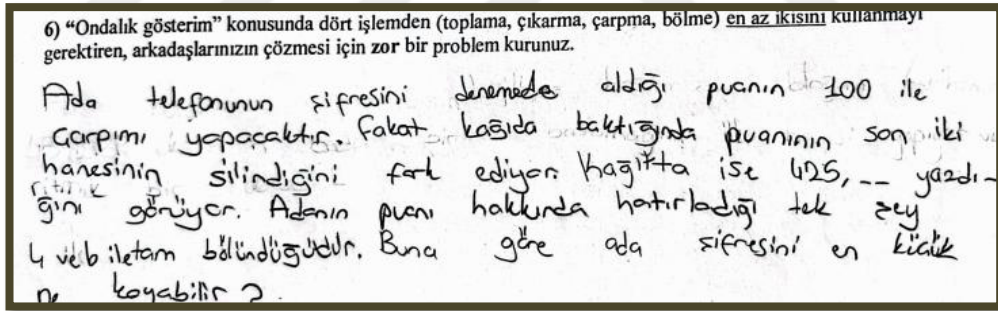 6) “Ondalık gösterim” konusunda dört işlemden (toplama, çıkarma, çarpma, bölme) en az ikisini kullanmayı
gerektiren, arkadaşlarınızın çözmesi için zor bir problem kurunuz.
Ada telefonunun şifresini denemede aldığı puanın 100 ile
çarpımı yapacaktır. Fakat kağıda baktığında puanının son iki
hanesinin silindiğini fark ediyor. Kağıtta ise 425, -- yazdı-
ğını görüyor. Adanın puanı hakkında hatırladığı tek şey
4 ve 6 ile tam bölündüğüdür. Buna göre ada şifresini en küçük
ne koyabilir ?